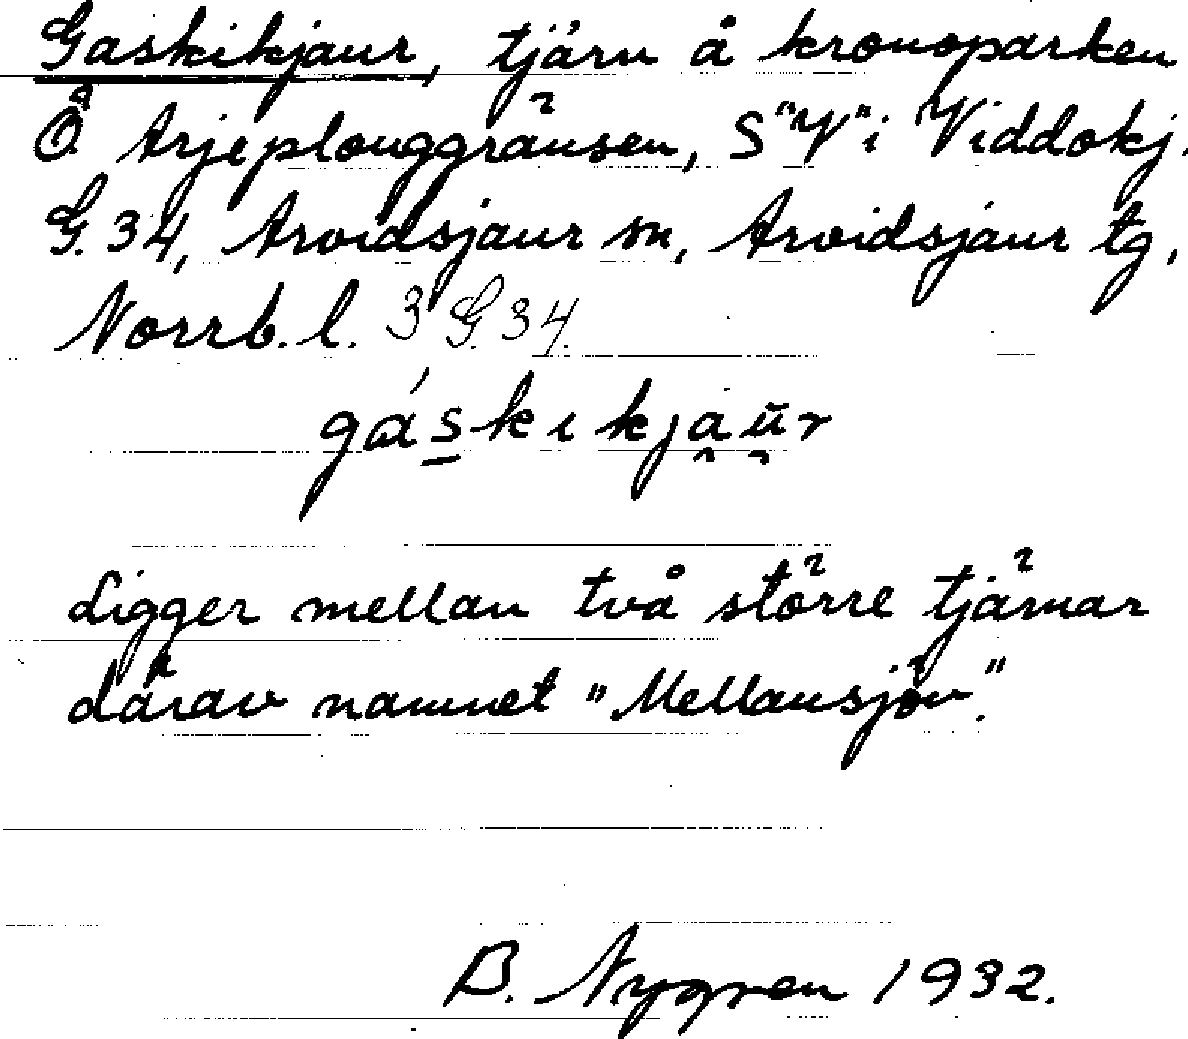 Gaskikjaur, tjärn å kronoparken
Ö Arjeplouggränsen, S "V" i Viddokj.
G. 34, Arvidsjaur sn, Arvidsjaur tg,
Norrb. l. 3 G. 34.
gáskikjau̯r
Ligger mellan två större tjärnar
därav namnet "Mellansjön".
B. Nygren 1932.